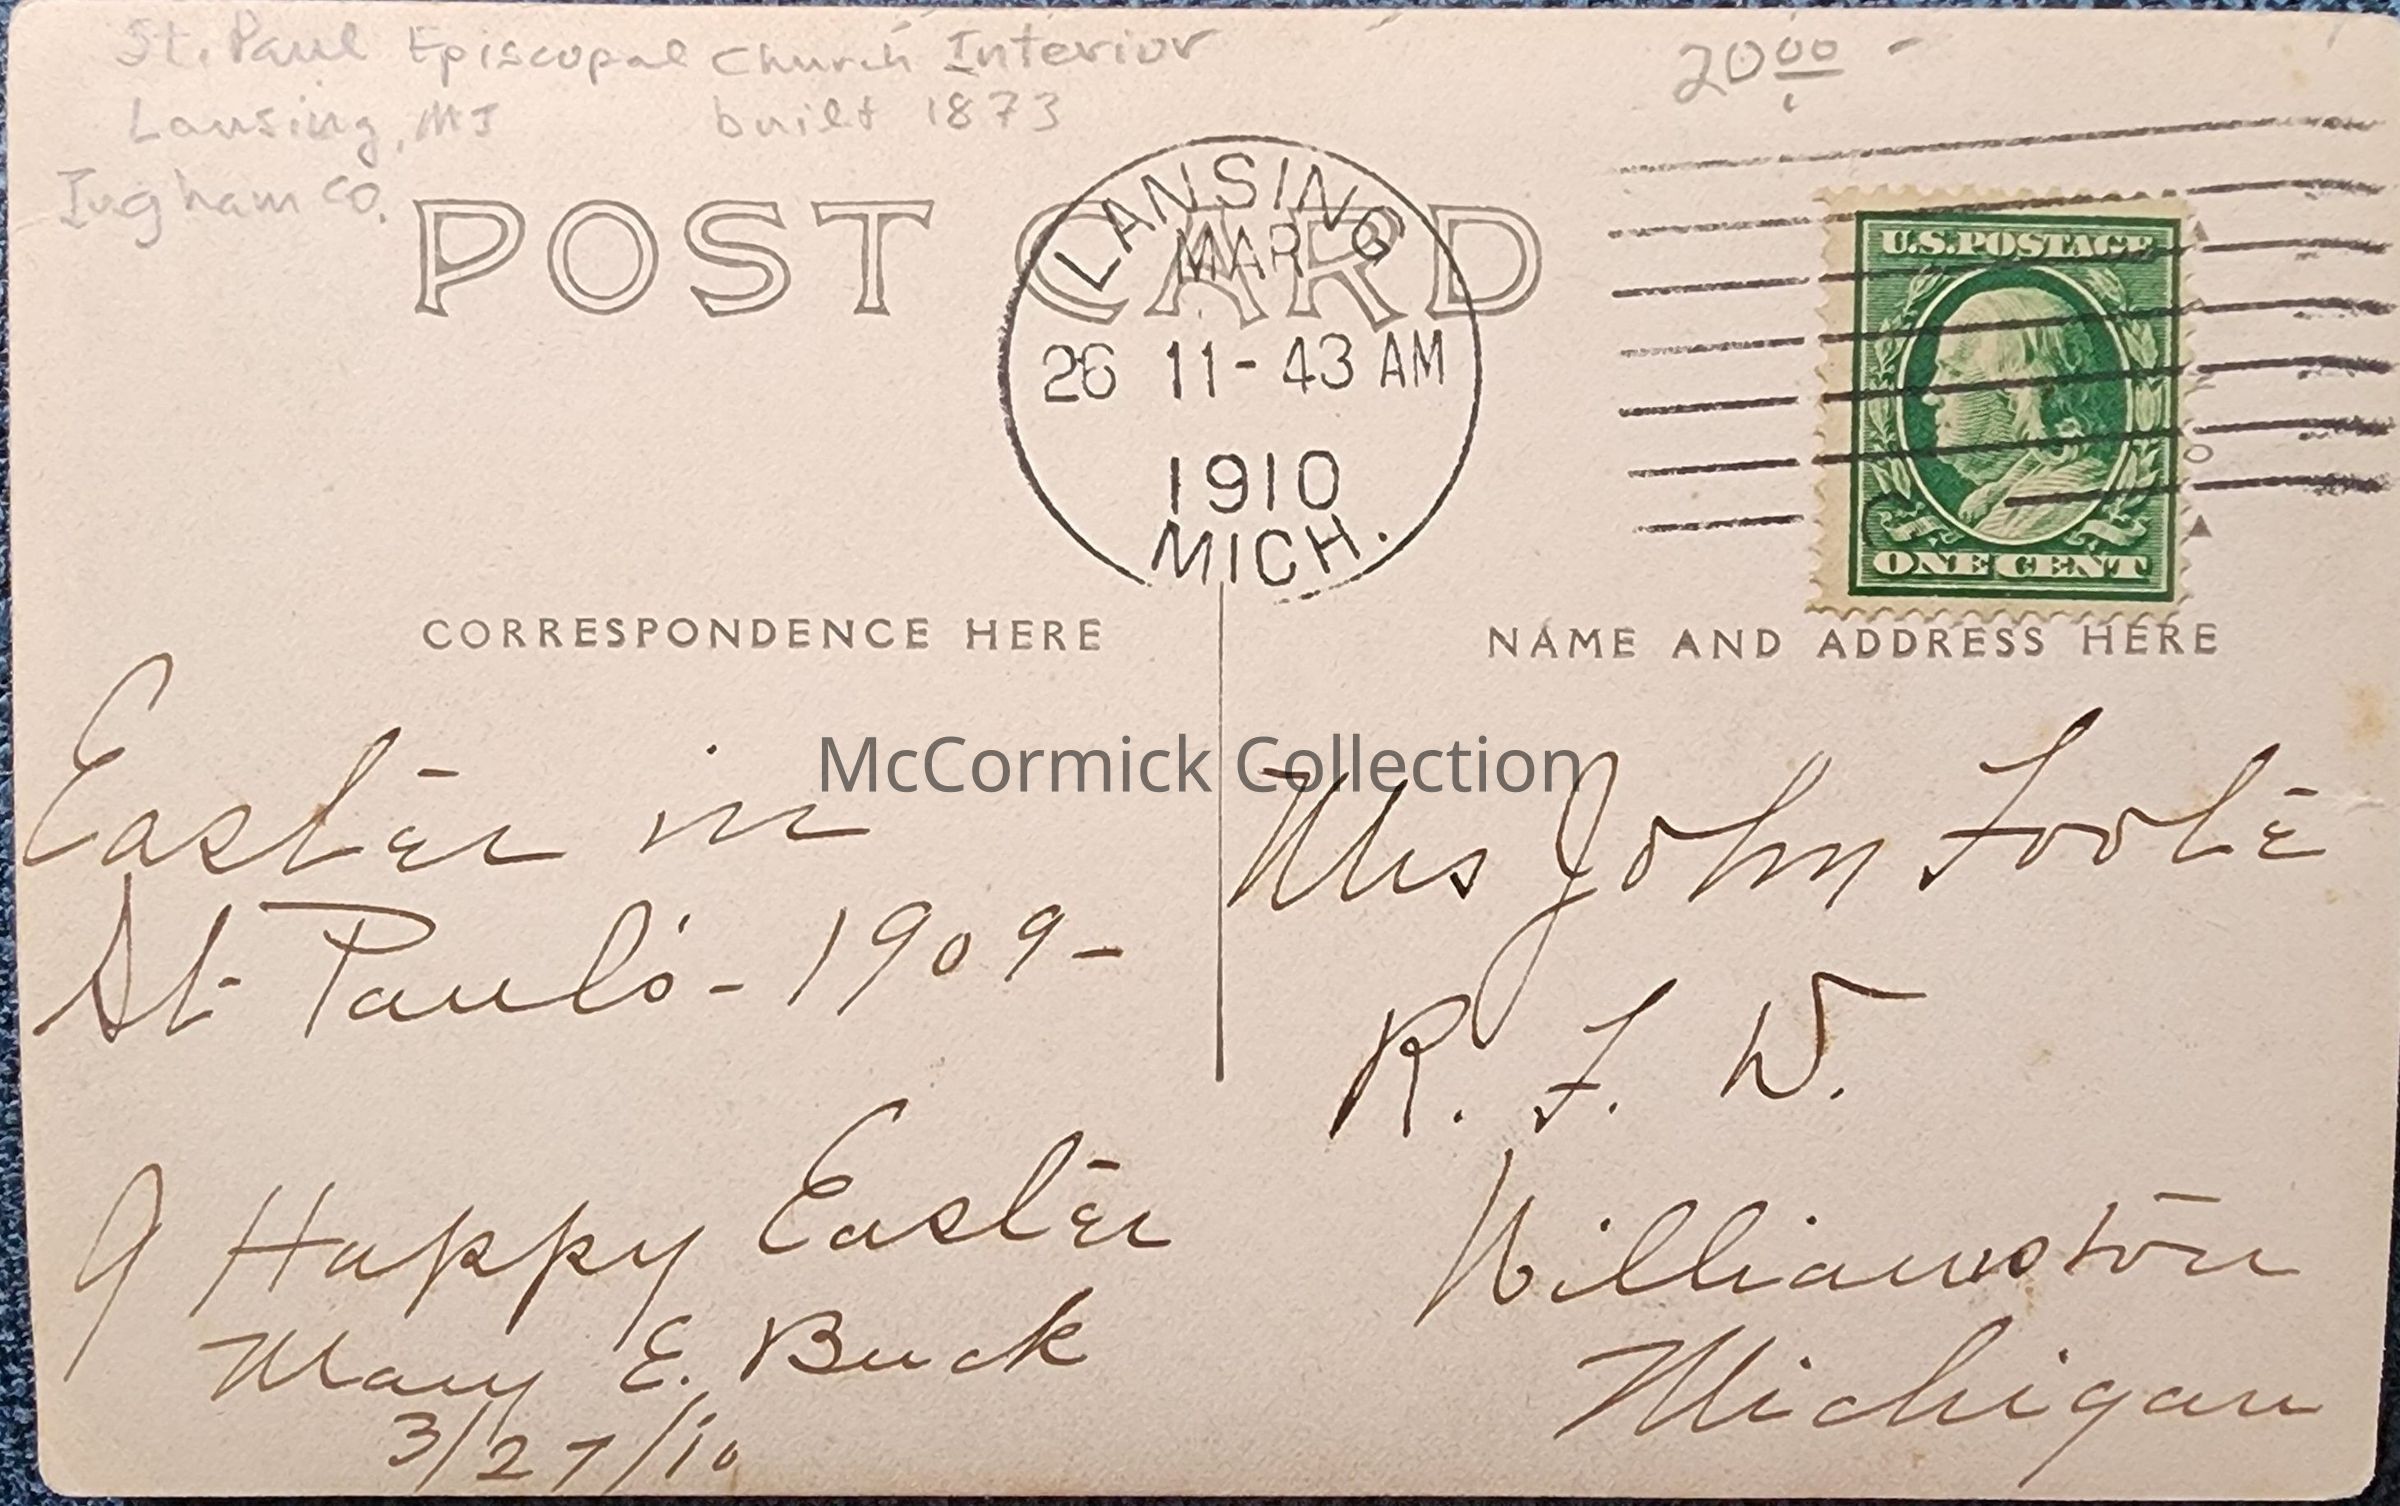 St. Paul Episcopal Church Interior
Lansing, MI built 1873
Ingham Co.
20 00 -
POST CARD
LANSING
MAR
26 11-43 AM
1910
MICH.
U.S. POSTAGE
ONE CENT
CORRESPONDENCE HERE
NAME AND ADDRESS HERE
McCormick Collection
Easter in
St. Paul's - 1909 -
A Happy Easter
Mary E. Buck
3/27/10
Mrs John Foote
R. F. D.
Williamston
Michigan